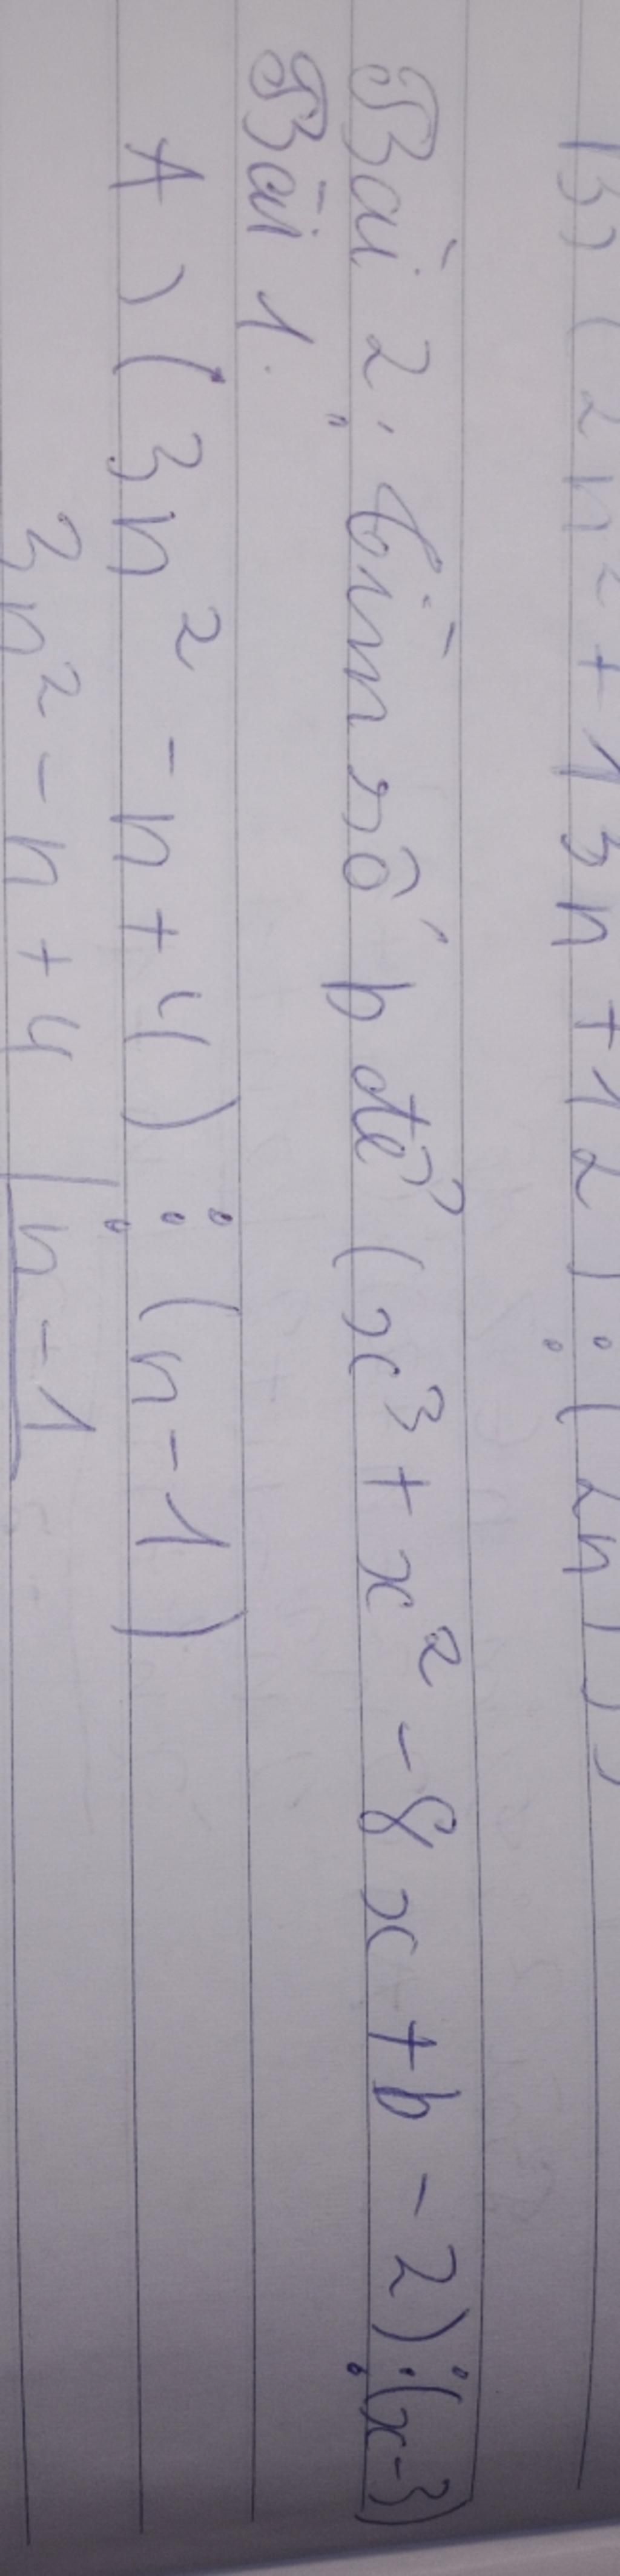 B) (2n² + 13n + 12) : (2n
Bài 2. tìm số b để (x³ + x² - 8x + b - 2) ⋮ (x-3)
Bài 1.
A) (3n² - n + 4) ⋮ (n - 1)
3n² - n + 4 | n - 1